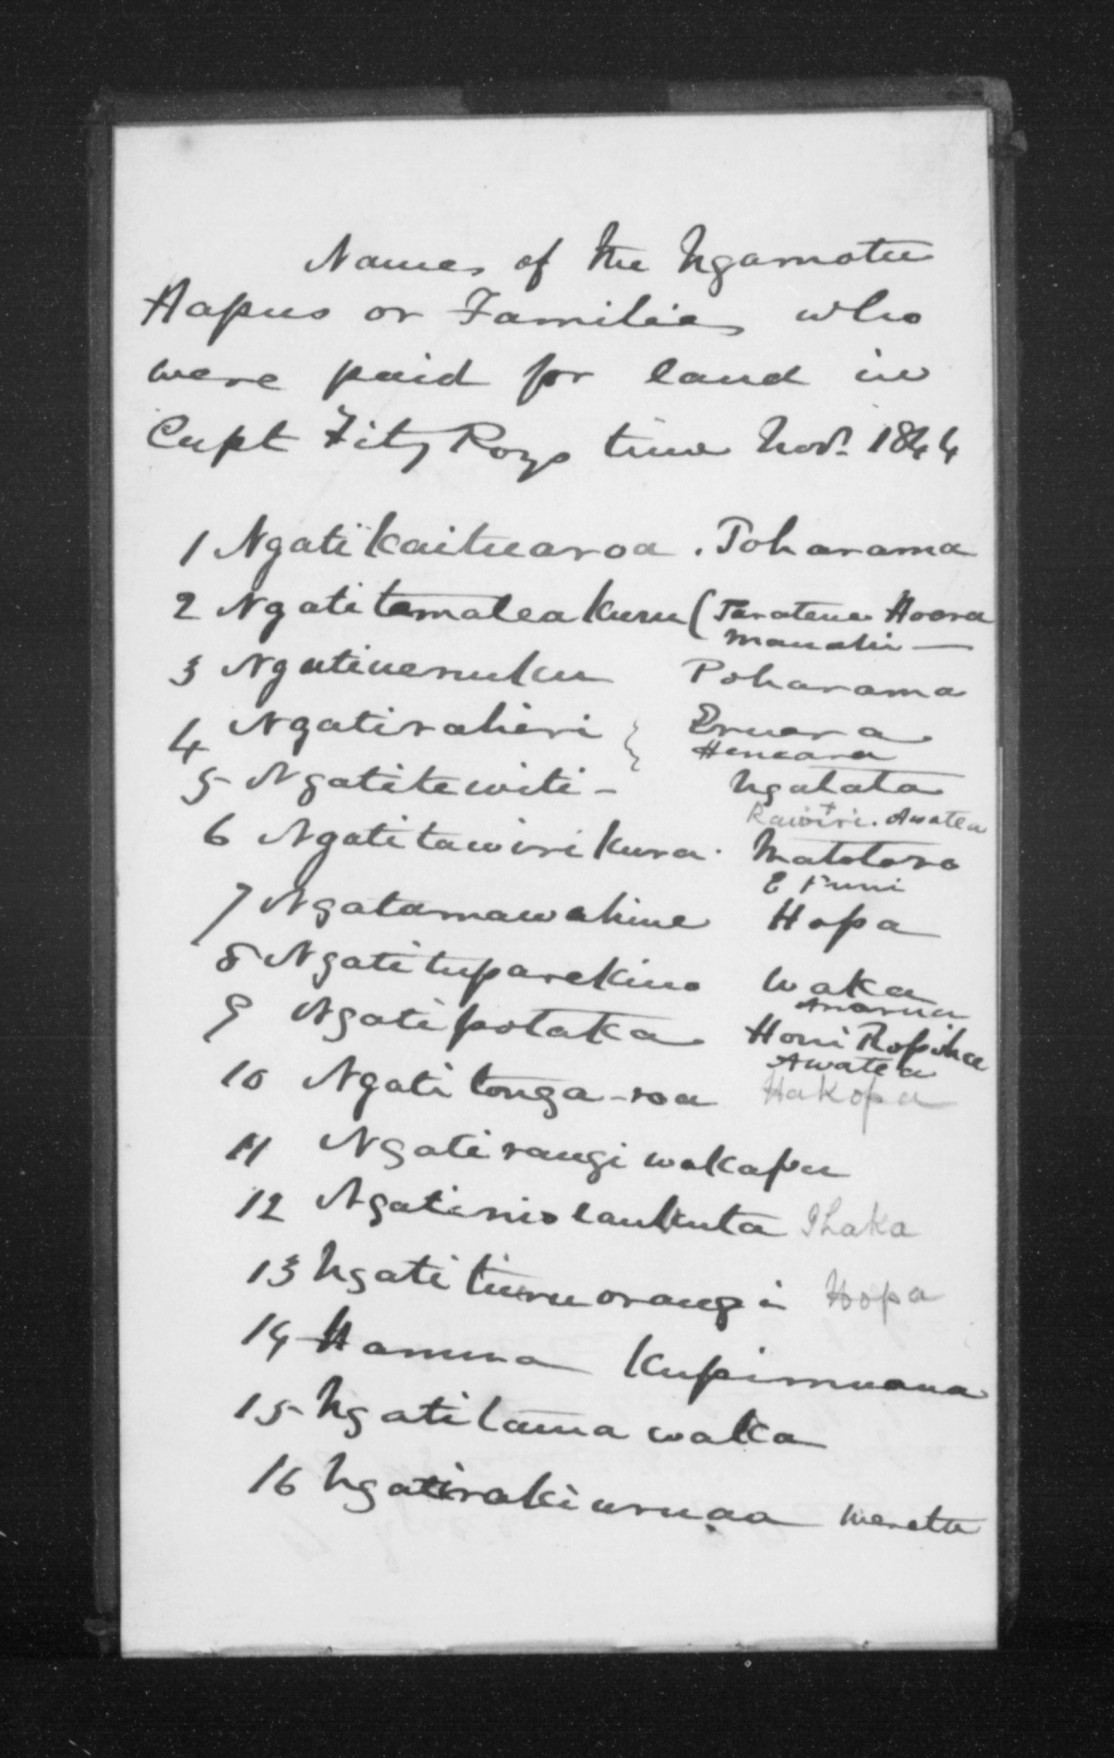 Names of the Ngamotu
Hapus or Families who
were paid for land in
Capt Fitz Roys time Novr. 1844
1 Ngatikaituaroa . Poharama
2 Ngatitemateakuru ( Taratene Hoera
Manahi —
3 Ngatiuenuku Poharama
4 Ngatirahiri { Eruera
Heneara
5 Ngatitewiti - Ngatata
Rawiri . Awatea
6 Ngatitawirikura . Matotoro
E Puni
7 Ngatamawahine Hopa
8 Ngatituparekino Waka
9 Ngatipotaka Honi Ropiha
Awatea
10 Ngatitonga-roa Hakopa
11 Ngatirangiwakapu
12 Ngati Ihaka
13 Ngatituruorangi Hopa
14 Hamua Kupimuana
15 Ngatitamawaka
16 Ngatirakiuruaa